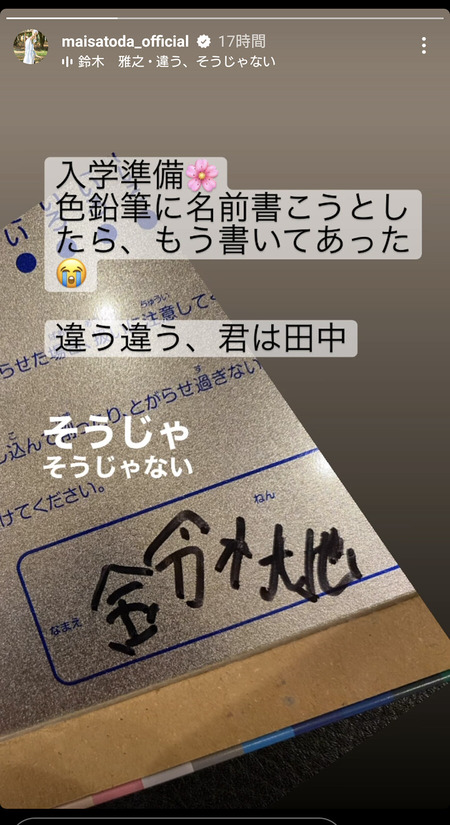 maisatoda_official 17時間
鈴木 雅之・違う、そうじゃない
入学準備🌸
色鉛筆に名前書こうとし
たら、もう書いてあった
😭
違う違う、君は田中
い
ちゅうい
注意して
らせた
す
とがらせ過ぎない
こ
し込んで
そうじゃ
そうじゃない
けてください。
ねん
なまえ
鈴木大地